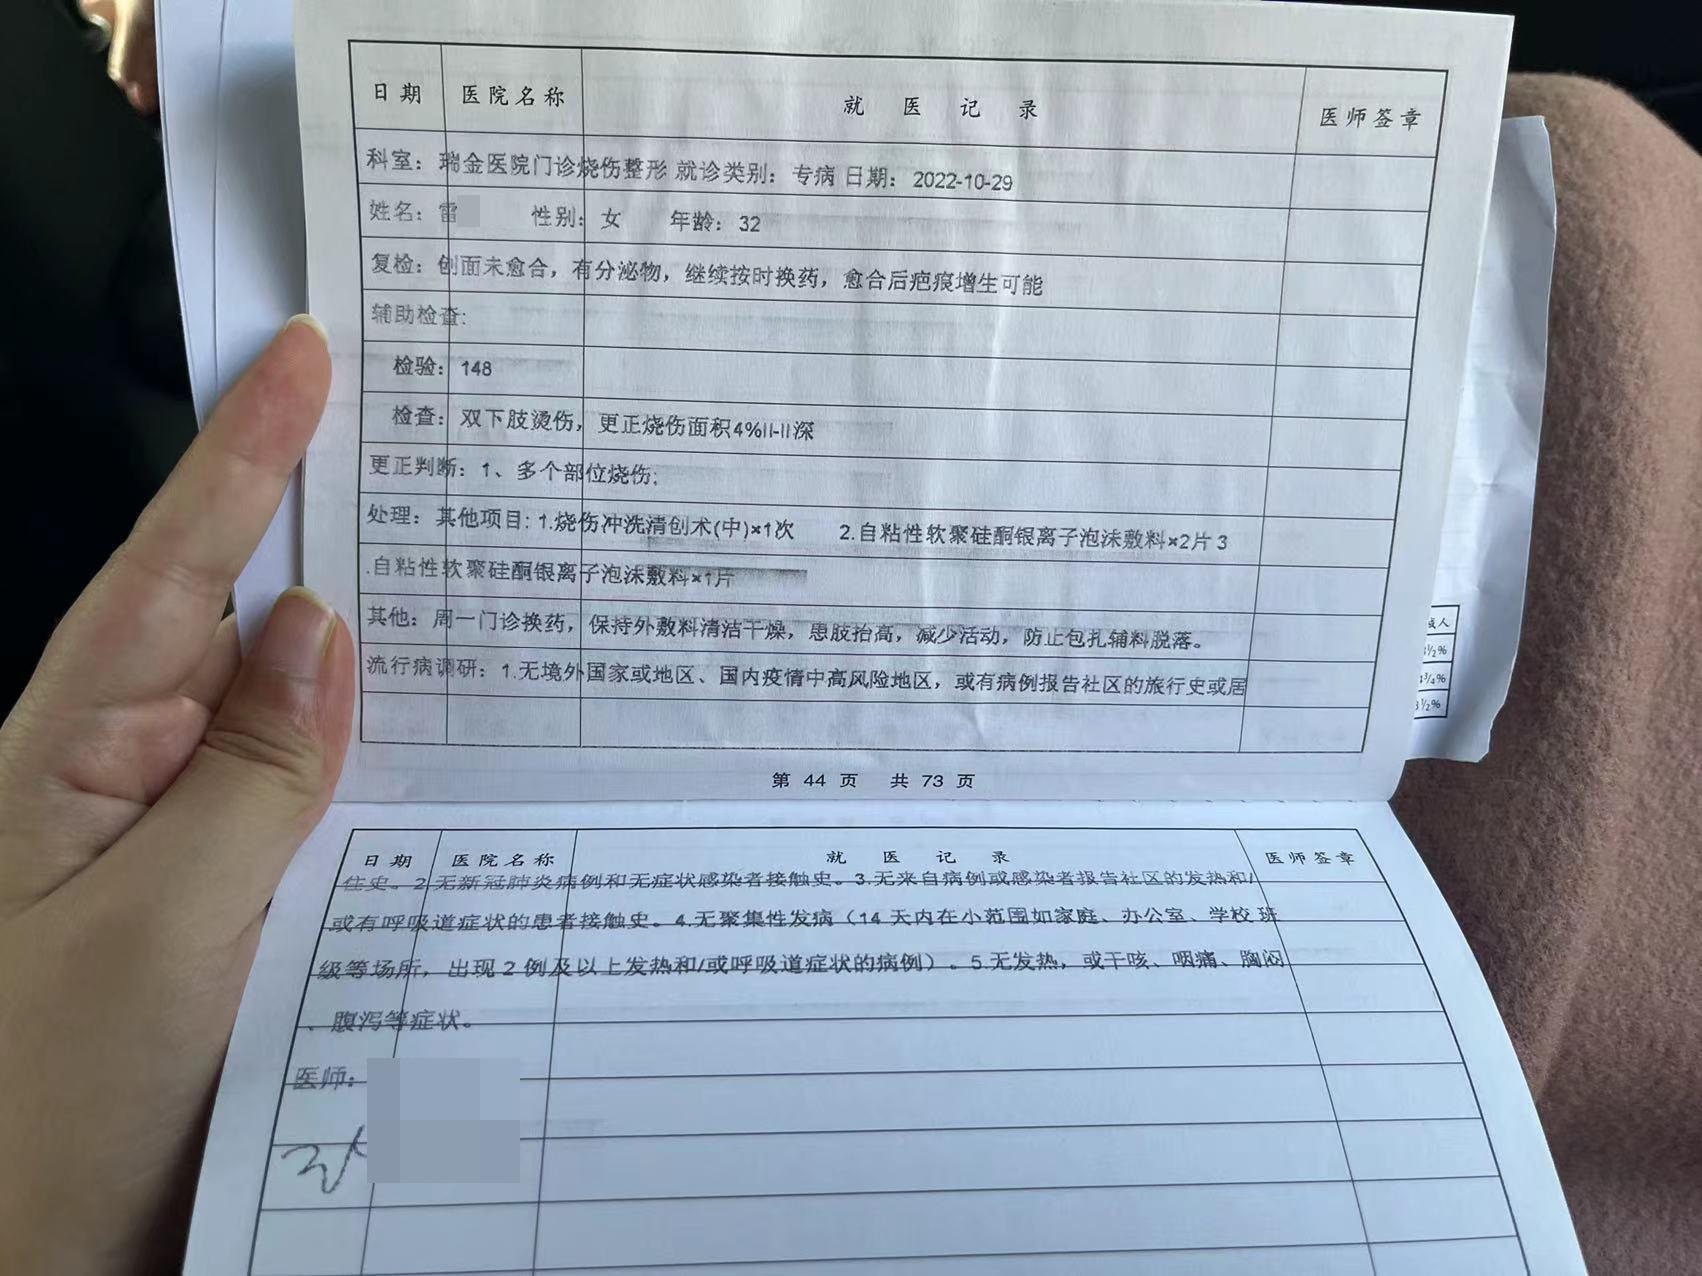 日期 医院名称 就医记录 医师签章
科室：瑞金医院门诊烧伤整形 就诊类别：专病 日期：2022-10-29
姓名：雷 性别：女 年龄：32
复检：创面未愈合，有分泌物，继续按时换药，愈合后疤痕增生可能
辅助检查：
检验：148
检查：双下肢烫伤，更正烧伤面积4%II-II深
更正判断：1、多个部位烧伤;
处理：其他项目：1.烧伤冲洗清创术(中)×1次 2.自粘性软聚硅酮银离子泡沫敷料×2片 3
.自粘性软聚硅酮银离子泡沫敷料×1片
其他：周一门诊换药，保持外敷料清洁干燥，患肢抬高，减少活动，防止包扎辅料脱落。
流行病调研：1.无境外国家或地区、国内疫情中高风险地区，或有病例报告社区的旅行史或居
第 44 页 共 73 页
日期 医院名称 就医记录 医师签章
住史。2.无新冠肺炎病例和无症状感染者接触史。3.无来自病例或感染者报告社区的发热和/
或有呼吸道症状的患者接触史。4.无聚集性发病（14天内在小范围如家庭、办公室、学校班
级等场所，出现2例及以上发热和/或呼吸道症状的病例）。5.无发热，或干咳、咽痛、胸闷
、腹泻等症状。
医师：
成人
3½%
4¾%
3½%